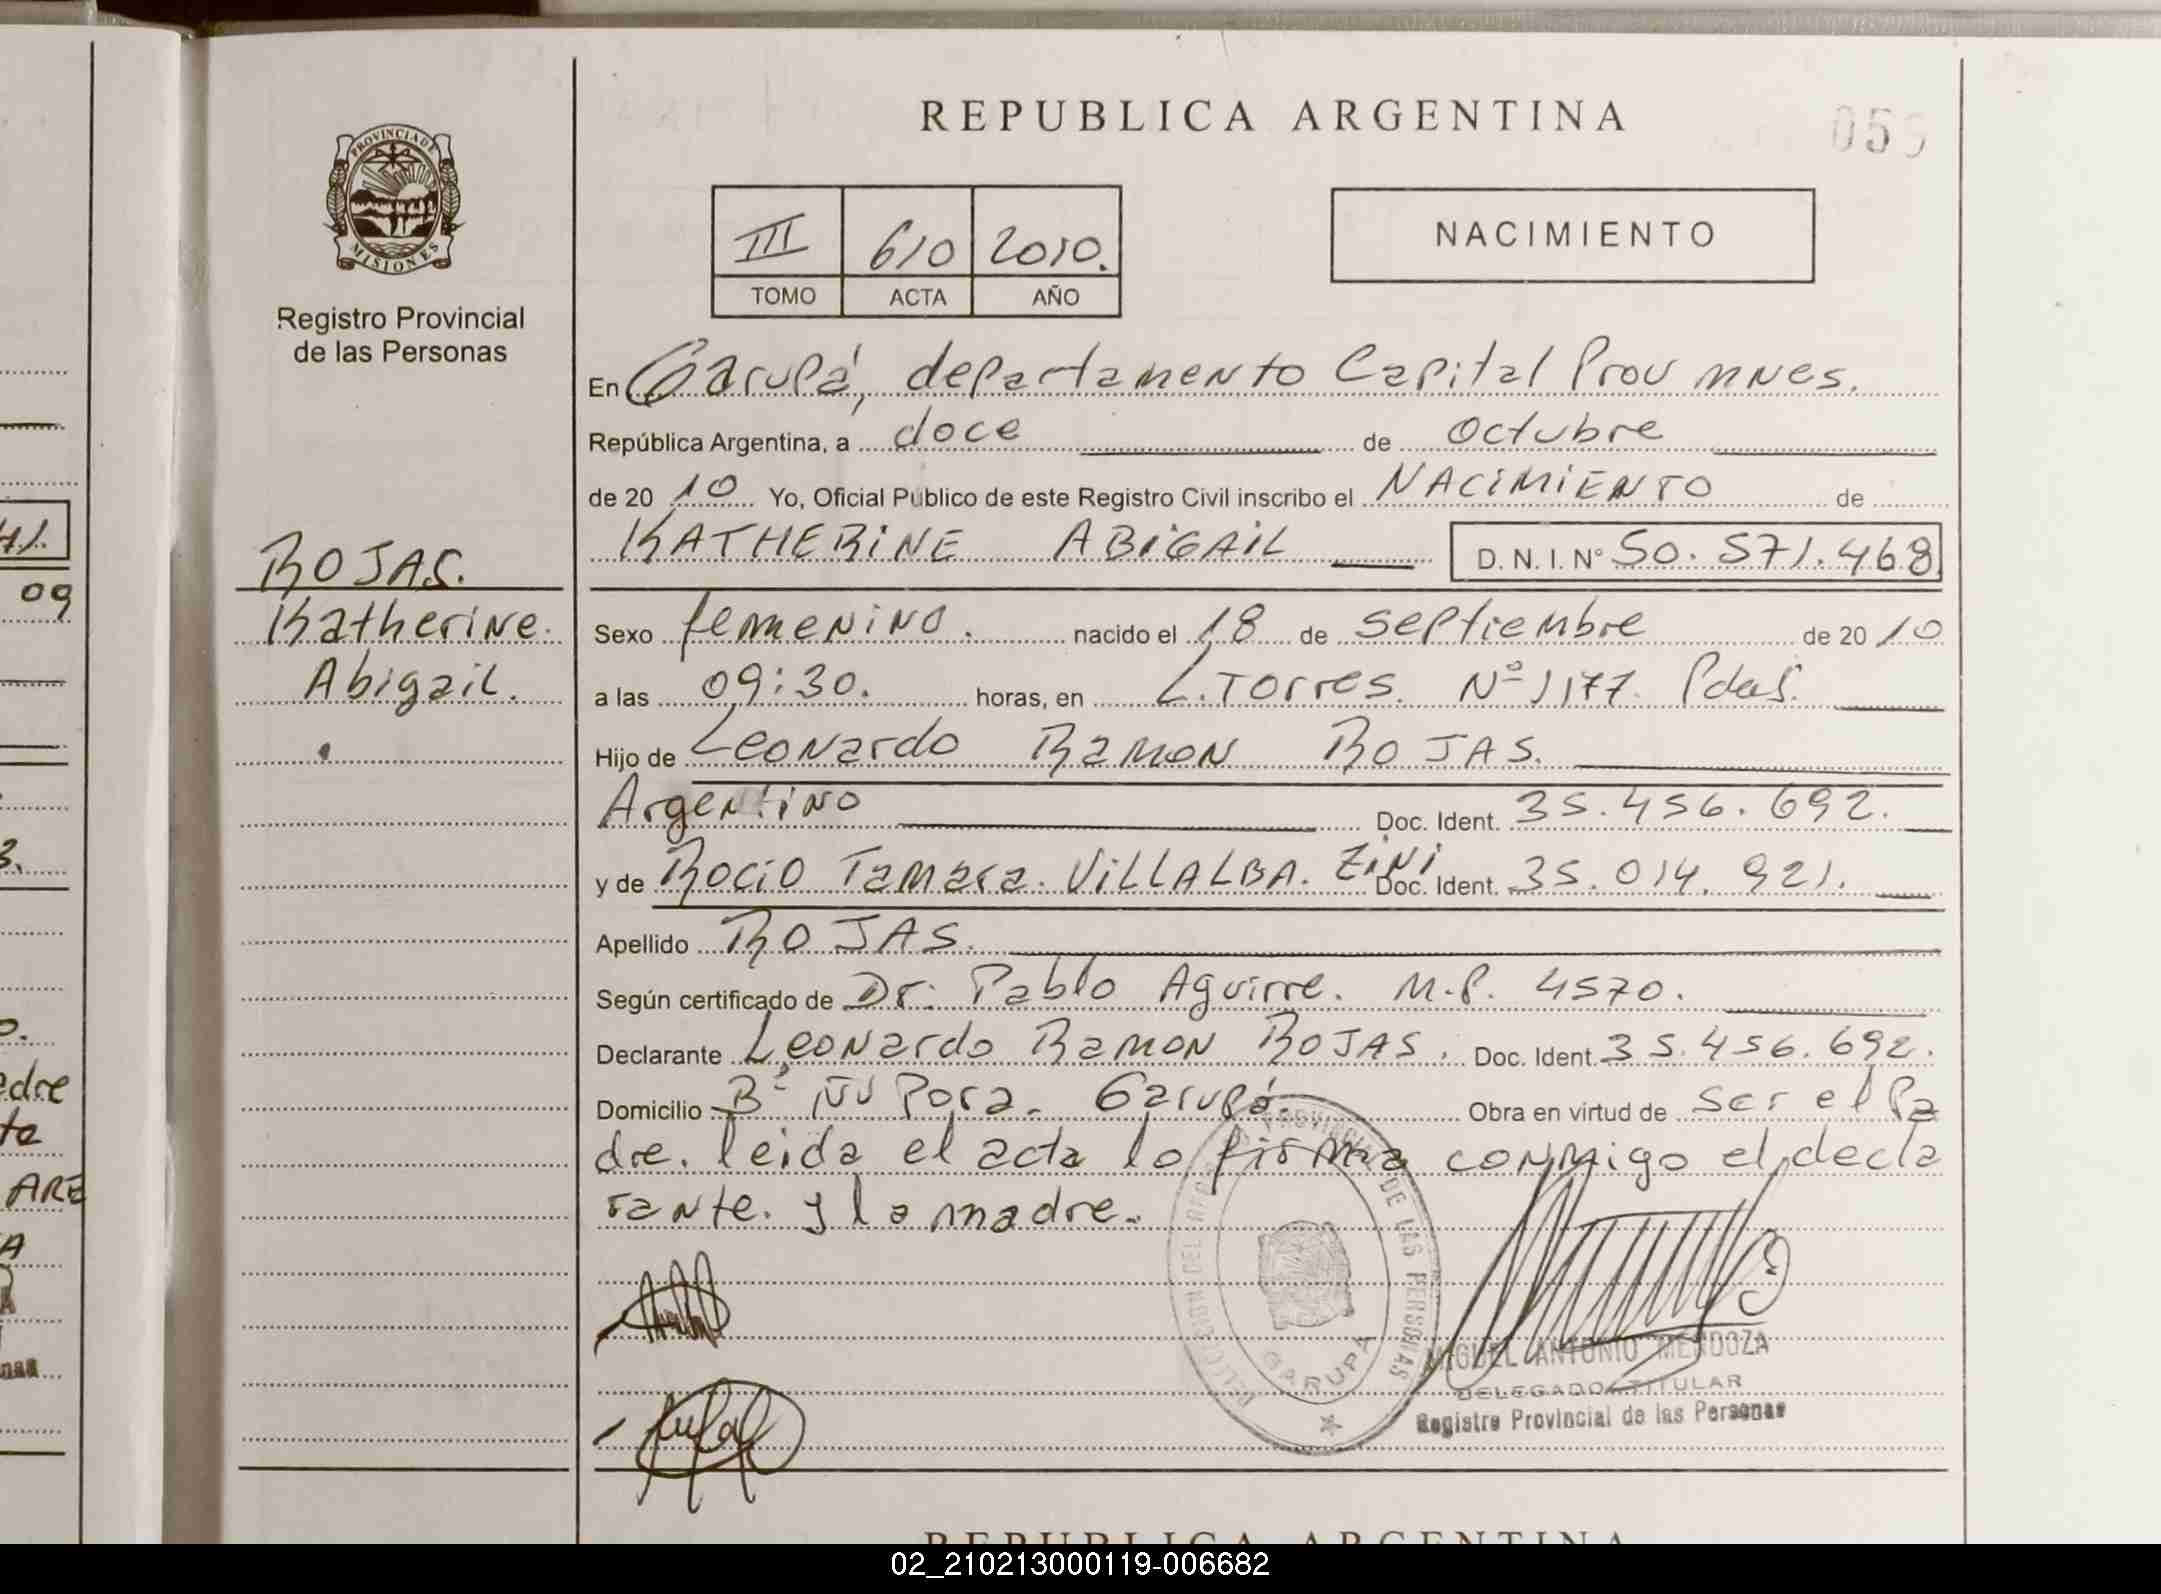 REPUBLICA ARGENTINA
PROVINCIA DE
MISIONES
Registro Provincial
de las Personas
III 610 2010.
TOMO ACTA AÑO
NACIMIENTO
En Garupá, departamento Capital Prov mnes.
República Argentina, a doce de octubre
de 20 10 Yo, Oficial Público de este Registro Civil inscribo el NACIMIENTO de
KATHERINE ABIGAIL D. N. I. N° 50.571.468
ROJAS.
Katherine.
Abigail.
Sexo femenino. nacido el 18 de septiembre de 20 10
a las 09:30. horas, en L. Torres. Nº 1177. Pdas.
Hijo de Leonardo Ramon ROJAS.
Argentino Doc. Ident. 35.456.692.
y de Rocio Tamara. VILLALBA. ZiNi Doc. Ident. 35.014.921.
Apellido ROJAS.
Según certificado de Dr. Pablo Aguirre. M.P. 4570.
Declarante Leonardo Ramon ROJAS. Doc. Ident. 35.456.692.
Domicilio Bº Ñu Pora. Garupá. Obra en virtud de ser el Pa
dre. leida el acta lo firma conmigo el decla
rante. y la madre.
GARUPA
MIGUEL ANTONIO MENDOZA
DELEGADO TITULAR
Registro Provincial de las Personas
REPUBLICA ARGENTINA
09
edre
ta
ARE
02_210213000119-006682